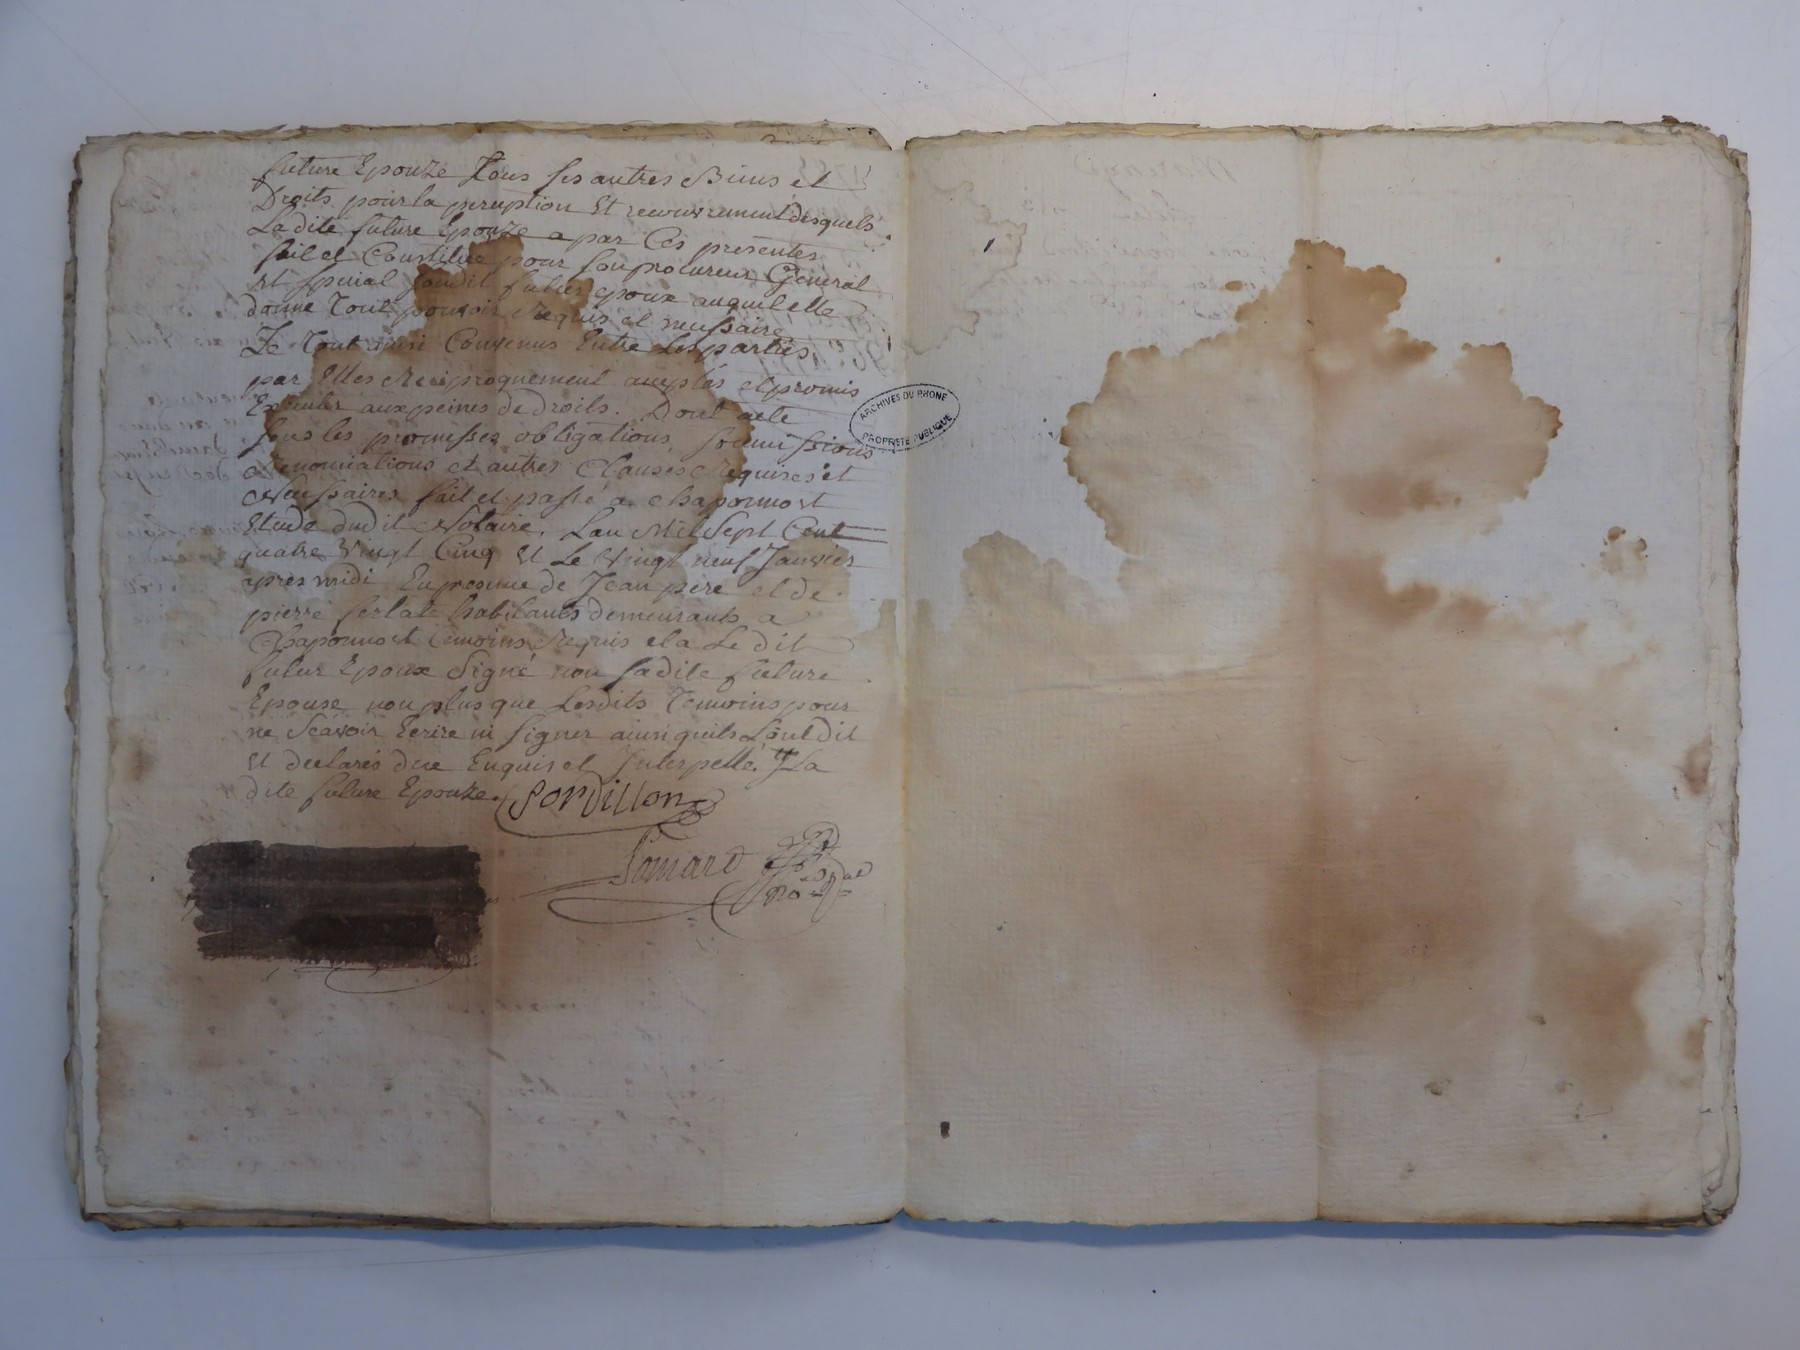 future Epouze Tous ses autres Biens et
Droits pour la perception Et recouvrement desquels
Ladite future Epouze a par Ces presentes
fait et Constitué pour son procureur General
Et special sondit futur epoux auquel elle
donne Tout pouvoir Requis et necessaire
Le Tout ainsi Convenus Entre Les parties
par Elles Reciproquement acceptés et promis
Executer aux peines de droits. Dont acte
sous les promesses obligations, soumissions
Renonciations et autres Clauses Requises et
Necessaires fait et passé a Chaponnost
Etude dudit Notaire, Lan Mil Sept Cent
quatre Vingt Cinq Et Le Vingt neuf Janvier
apres midi En presence de Jean pere et de
pierre habitants demeurants a
Chaponnost Temoins Requis et a Le dit
futur Epoux Signé non sadite future
Epouse non plus que Lesdits Temoins pour
ne Scavoir Ecrire ni signer ainsi quils Lont dit
Et declarés de ce Enquis et Interpellé, La
dite future Epouze. Sordillon
ARCHIVES DU RHONE
PROPRIÉTÉ PUBLIQUE